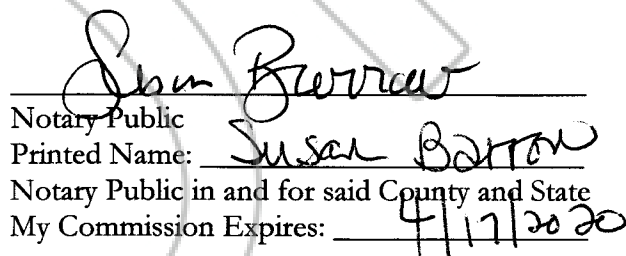 Susan Barrow
Notary Public
Printed Name: Susan Barron
Notary Public in and for said County and State
My Commission Expires: 4/17/2020